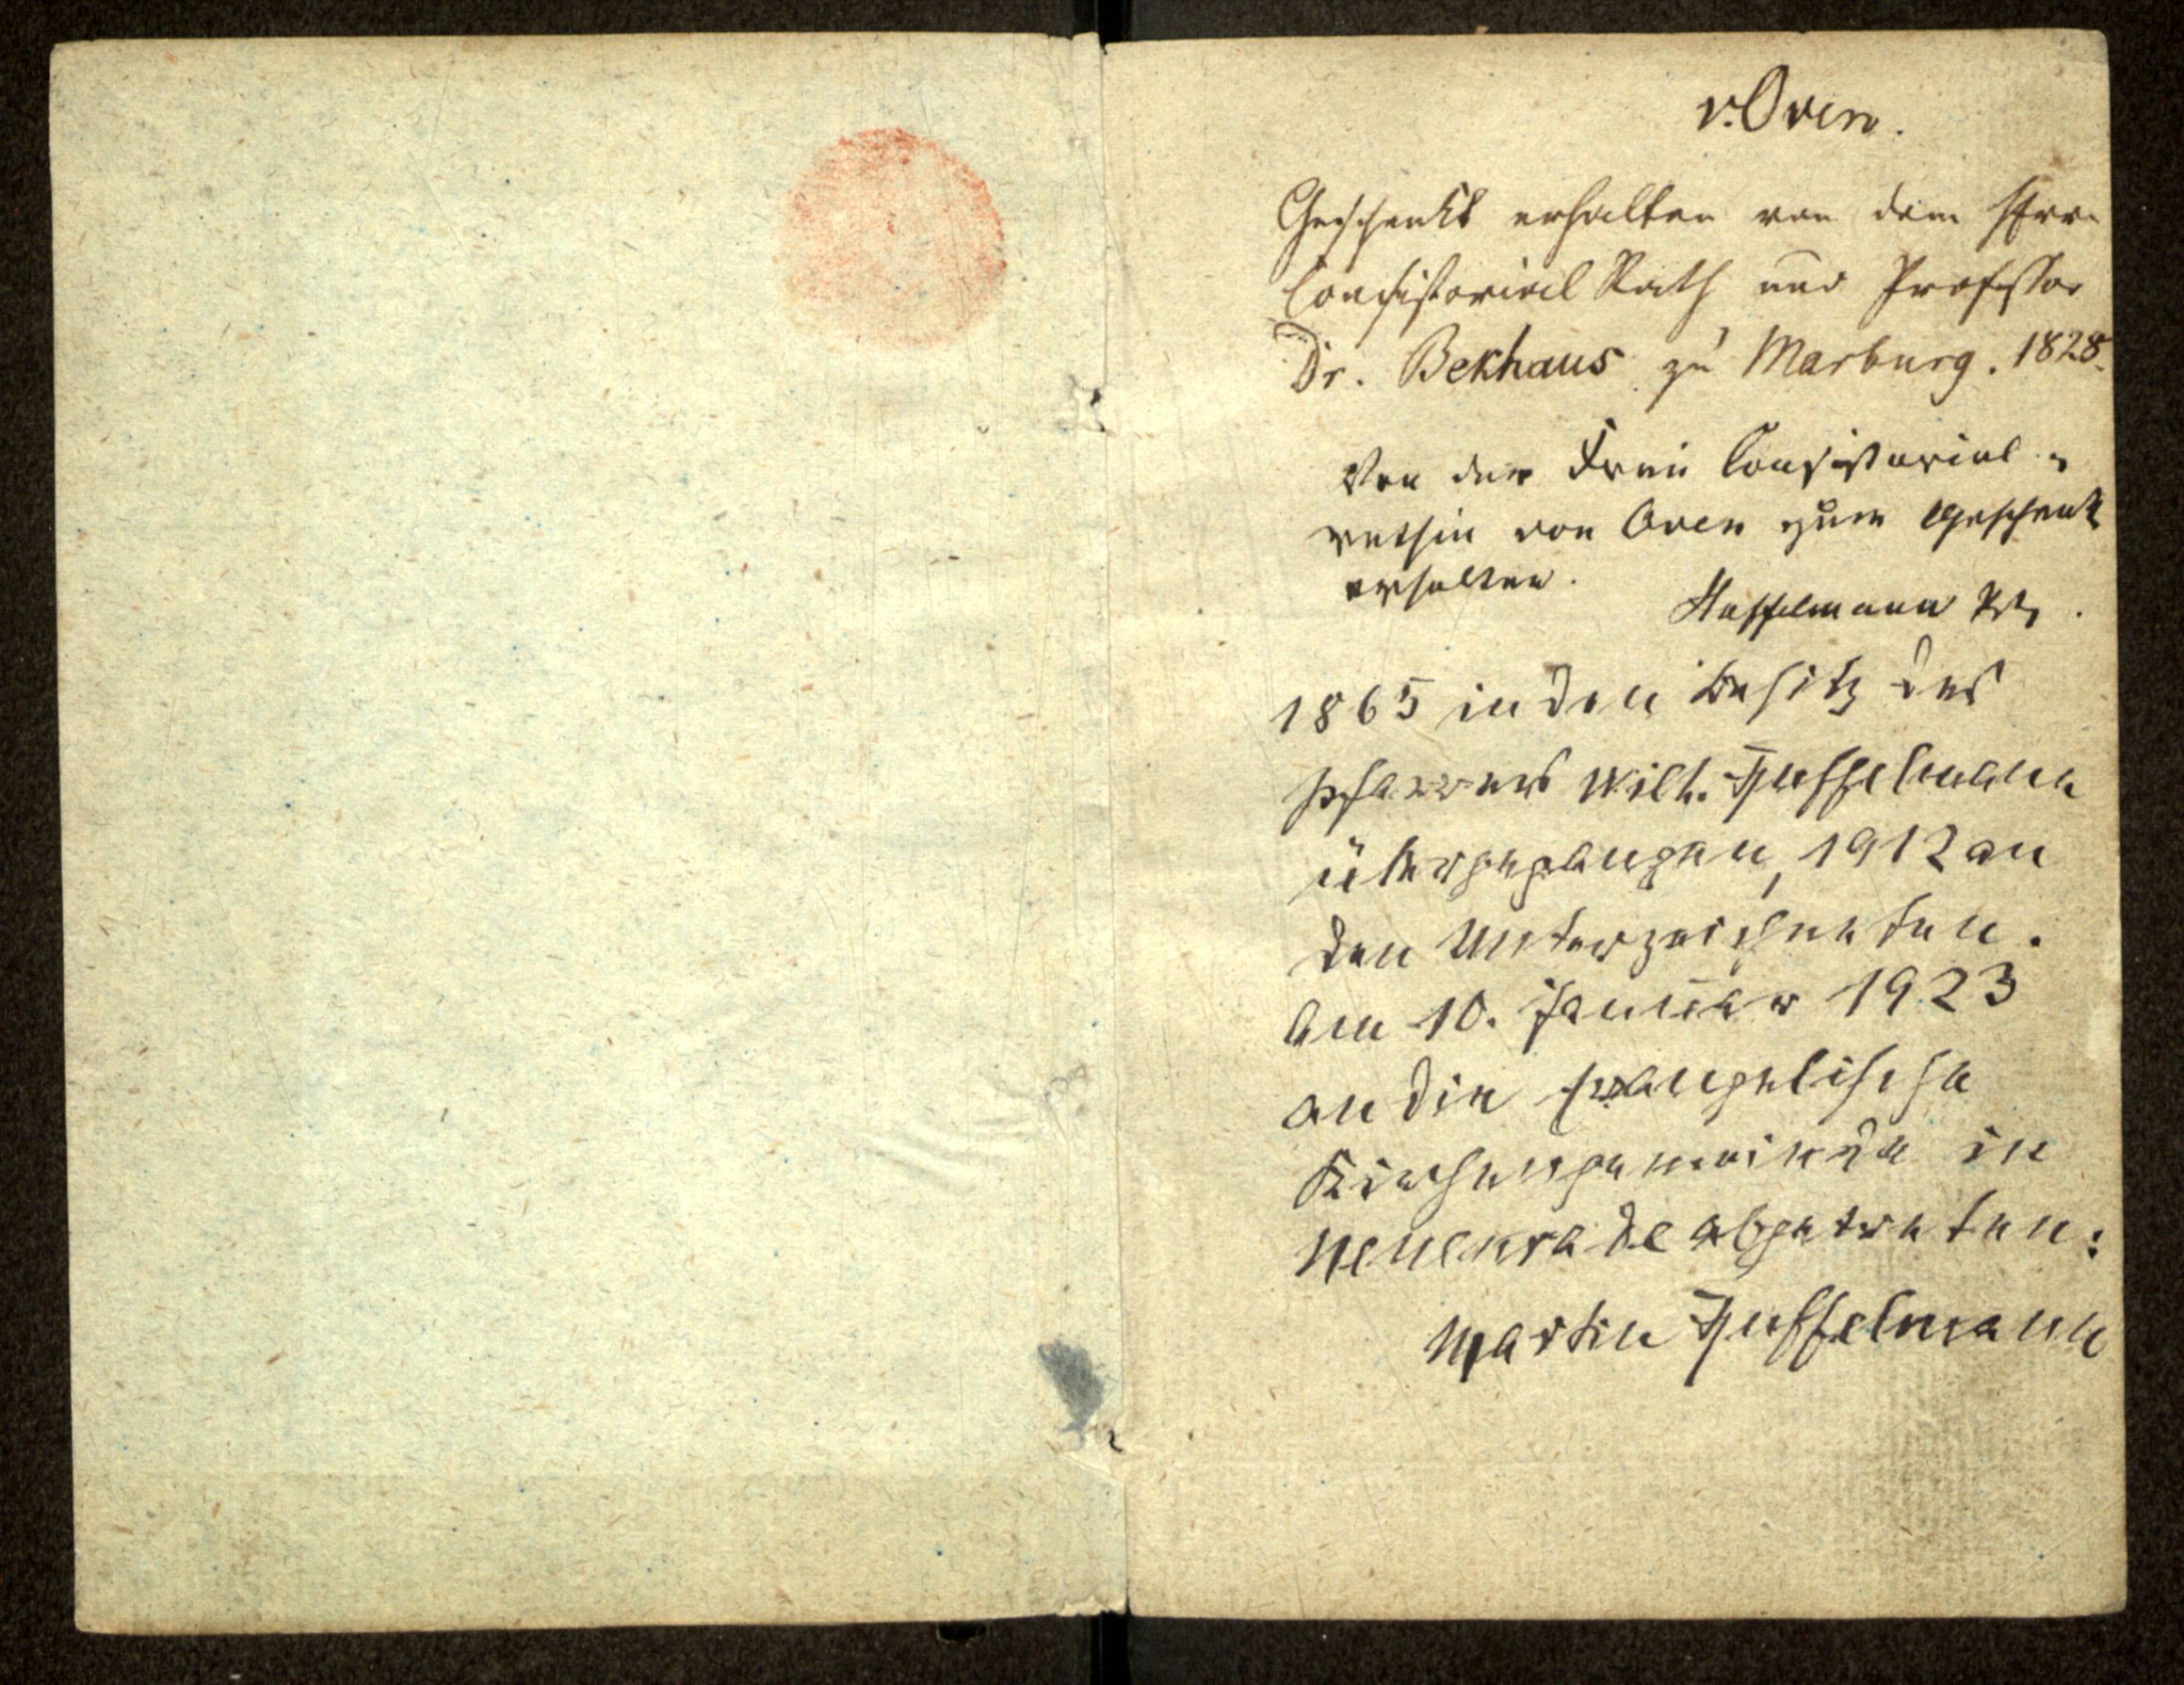 v. Oven.
Geschenkt erhalten von dem Herrn
Consistorial Rath und Professor
Dr. Bekhaus zu Marburg. 1828.
Von der Frau Consistorial-
räthin von Oven zum Geschenk
erhalten.
Hasselmann
1865 in den Besitz des
Pfarrers Wilh. Husselmann
übergegangen, 1912 an
den Unterzeichneten.
Am 10. Januar 1923
an die evangelische
Kirchengemeinde in
Neuenrade abgetreten:
Martin Husselmann